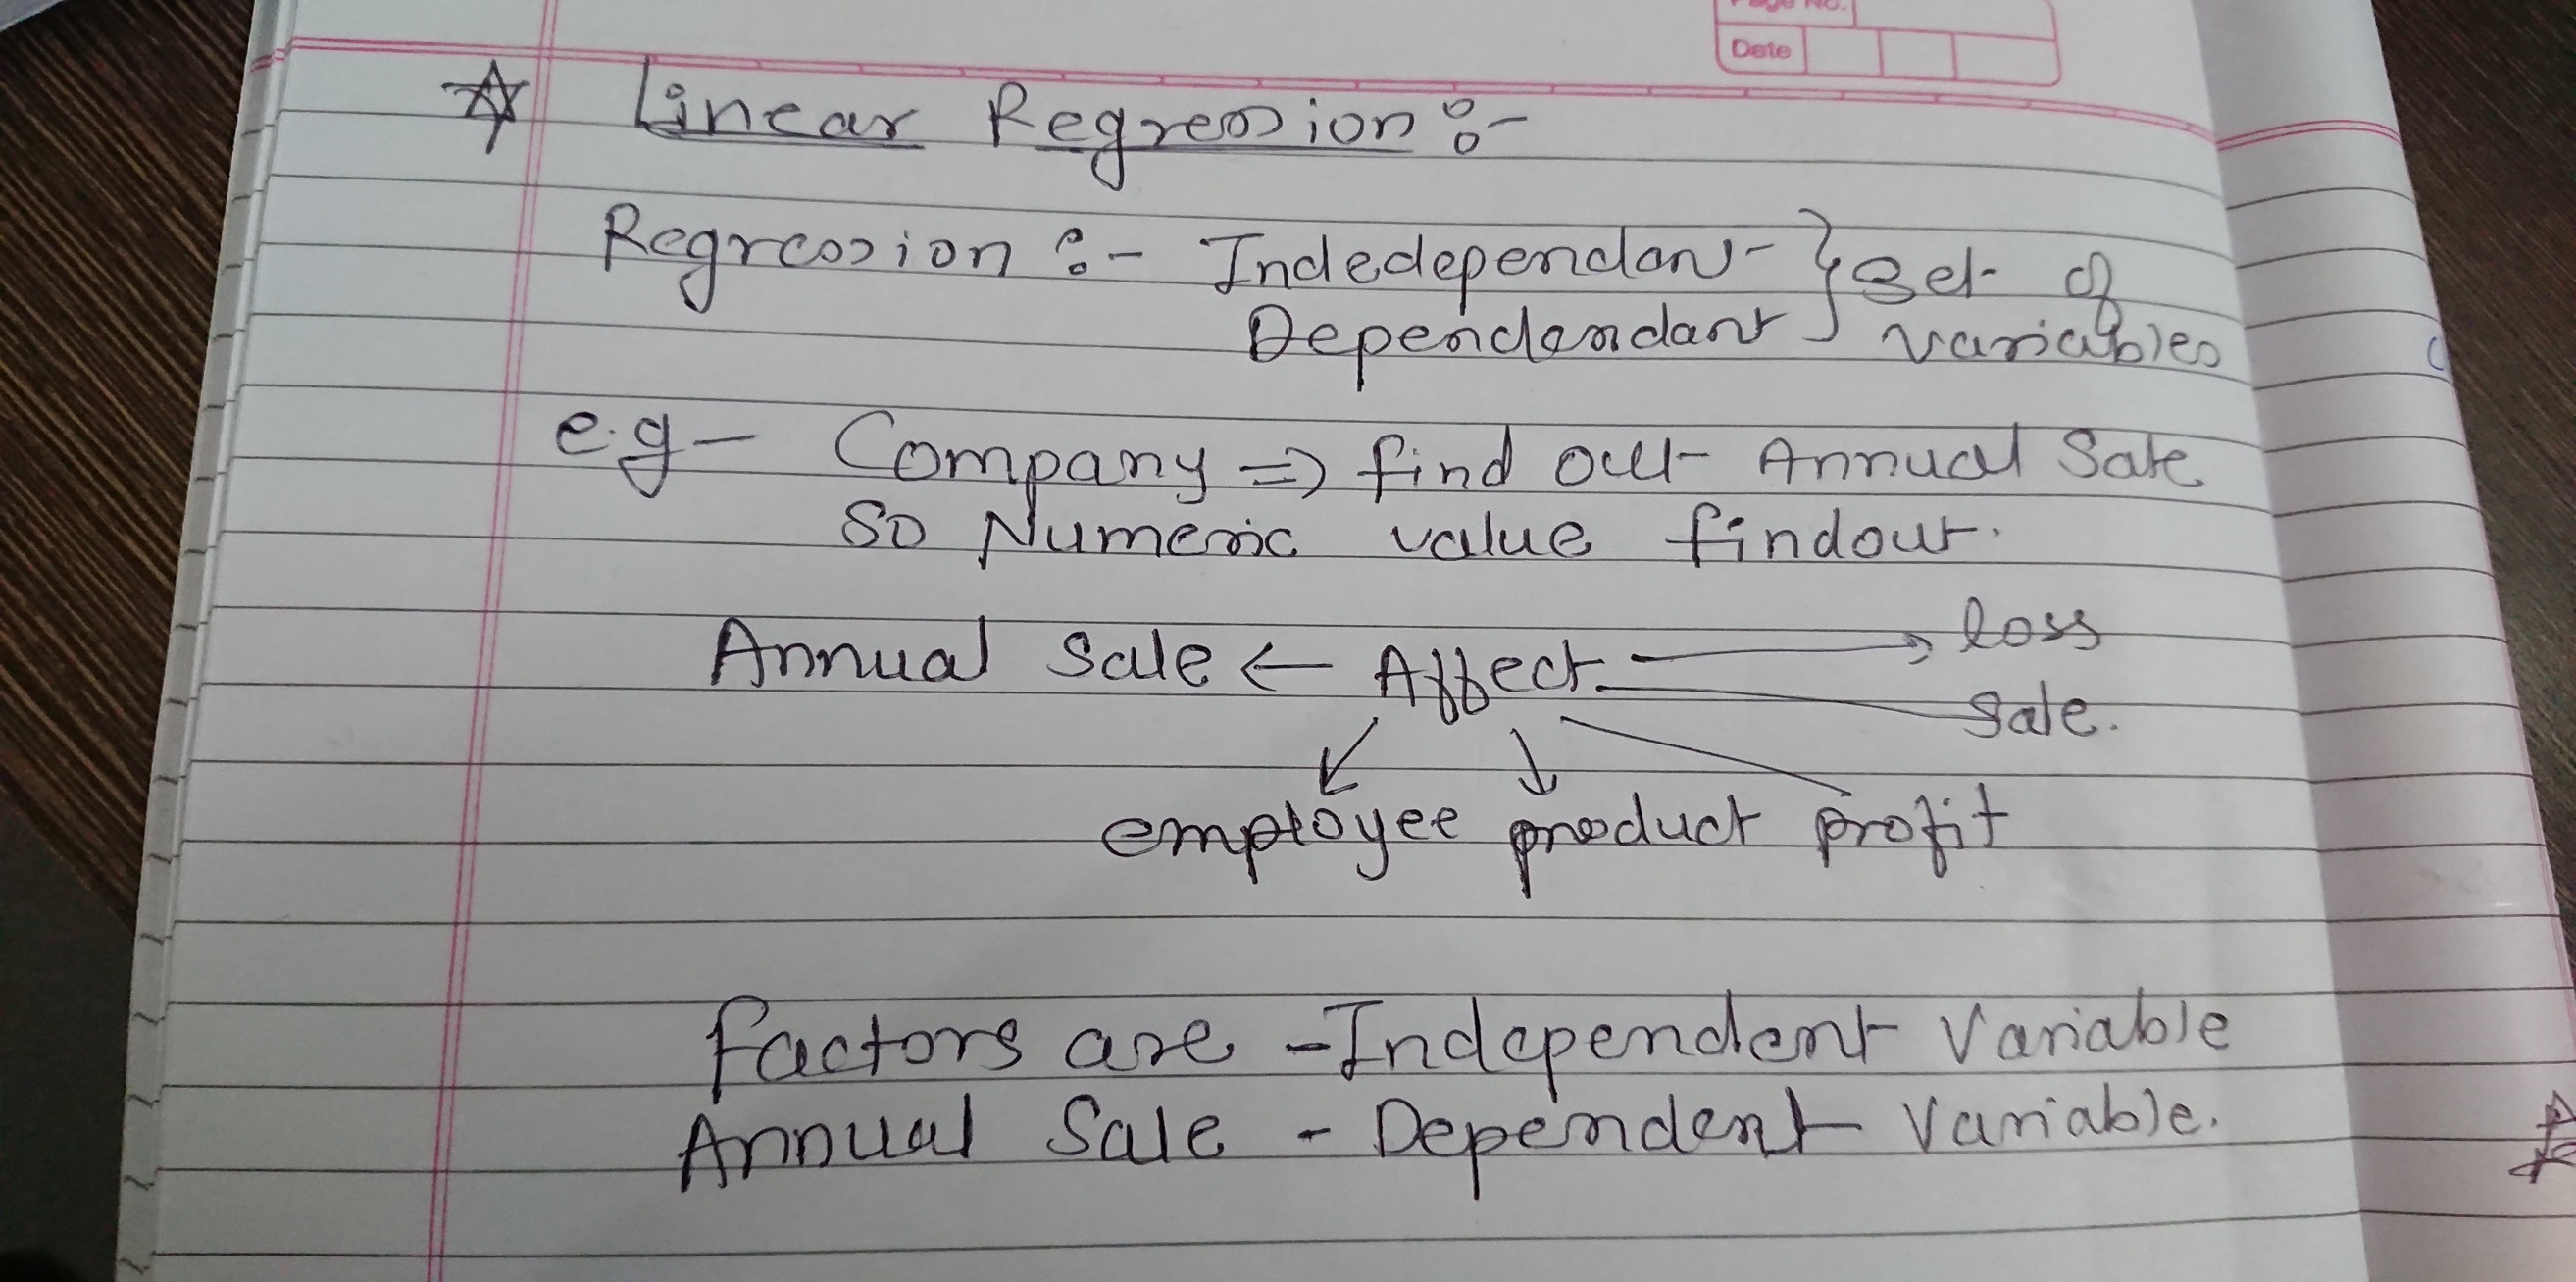 Page No.
Date
☆ Linear Regression :-
Regression :- Indedependant } Set of
Dependendant } variables
e.g - Company => find out Annual Sale
So Numeric value findout.
Annual Sale ← Affect → loss
sale.
employee product profit
factors are - Independent Variable
Annual Sale - Dependent Variable.